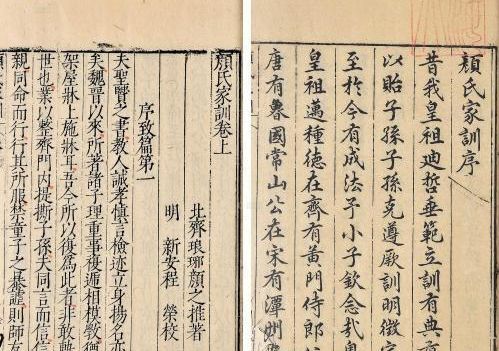 顏氏家訓序
昔我皇祖迪哲垂範立訓有典有
以貽子孫子孫克遵厥訓明徵定
至於今有成法予小子欽念哉
皇祖邁種德在齊有黃門侍郎
唐有魯國常山公在宋有潭州
顏氏家訓卷上
北齊琅琊顏之推著
明 新安程 榮校
序致篇第一
夫聖賢之書教人誠孝慎言檢迹立身揚名亦
矣魏晉以來所著諸子理重事複遞相模斆猶
架屋牀上施牀耳吾今所以復爲此者非敢軌
世也業以整齊門內提撕子孫夫同言而信信
親同命而行行其所服禁童子之暴謔則師友